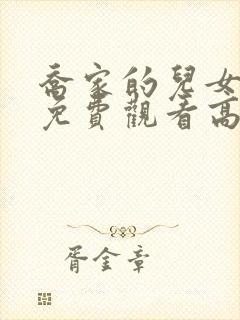 喬家的兒女
免費觀看高
胥金章